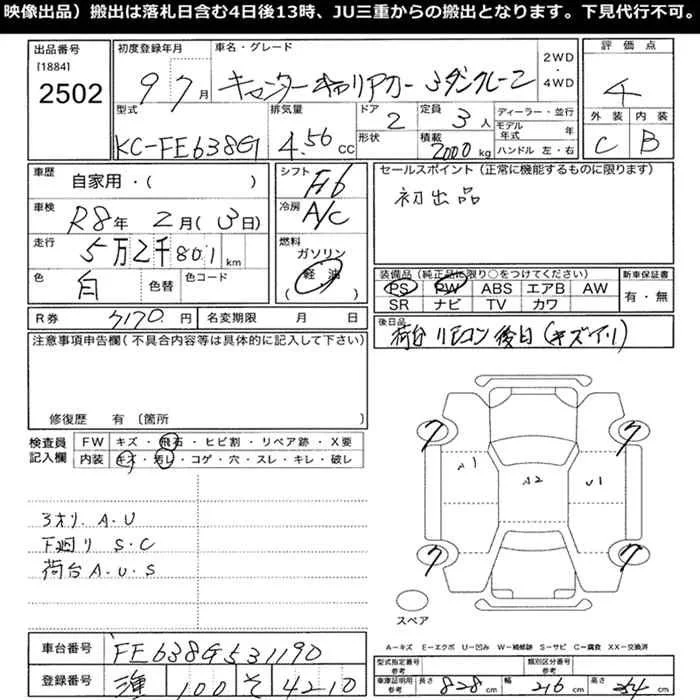 映像出品）搬出は落札日含む4日後13時、JU三重からの搬出となります。下見代行不可。
出品番号
[1884]
2502
初度登録年月
9年7月
車名・グレード
キャンター キャリアカー 3ダン クレーン
2WD
・
4WD
評価点
4
外装 内装
C B
型式
KC-FE638G
排気量
4.56 cc
ドア
2
定員
3人
形状
積載
2000 kg
ディーラー・並行
モデル年式 年
ハンドル 左・右
車歴
自家用・( )
シフト
F6
車検
R8年 2月(3日)
冷房
A/C
走行
5万2千801 km
燃料
ガソリン
軽油
( )
色
白
色替
色コード
セールスポイント（正常に機能するものに限ります）
初出品
装備品（純正品に限り○をつけてください）
PS PW ABS エアB AW
SR ナビ TV カワ
新車保証書
有・無
R券 7170.円
名変期限 月 日
後日品
荷台リモコン後日(キズイリ)
注意事項申告欄（不具合内容等は具体的に記入して下さい）
修復歴 有〔箇所
検査員
記入欄
FW キズ・飛石・ヒビ割・リペア跡・X要
内装 キズ・汚レ・コゲ・穴・スレ・キレ・破レ
3オリ A・U
下廻り S・C
荷台 A・U・S
ク ク
A1 A2 U1
ク ク
スペア
A－キズ E－エクボ U－凹み W－補修跡 S－サビ C－腐食 XX－交換済
車台番号 FE638G531190
登録番号 三重 100 そ 4210
型式指定番号
参考
類別区分番号
参考
車庫証明用
参考
長さ 828 cm 幅 216 cm 高さ 264 cm